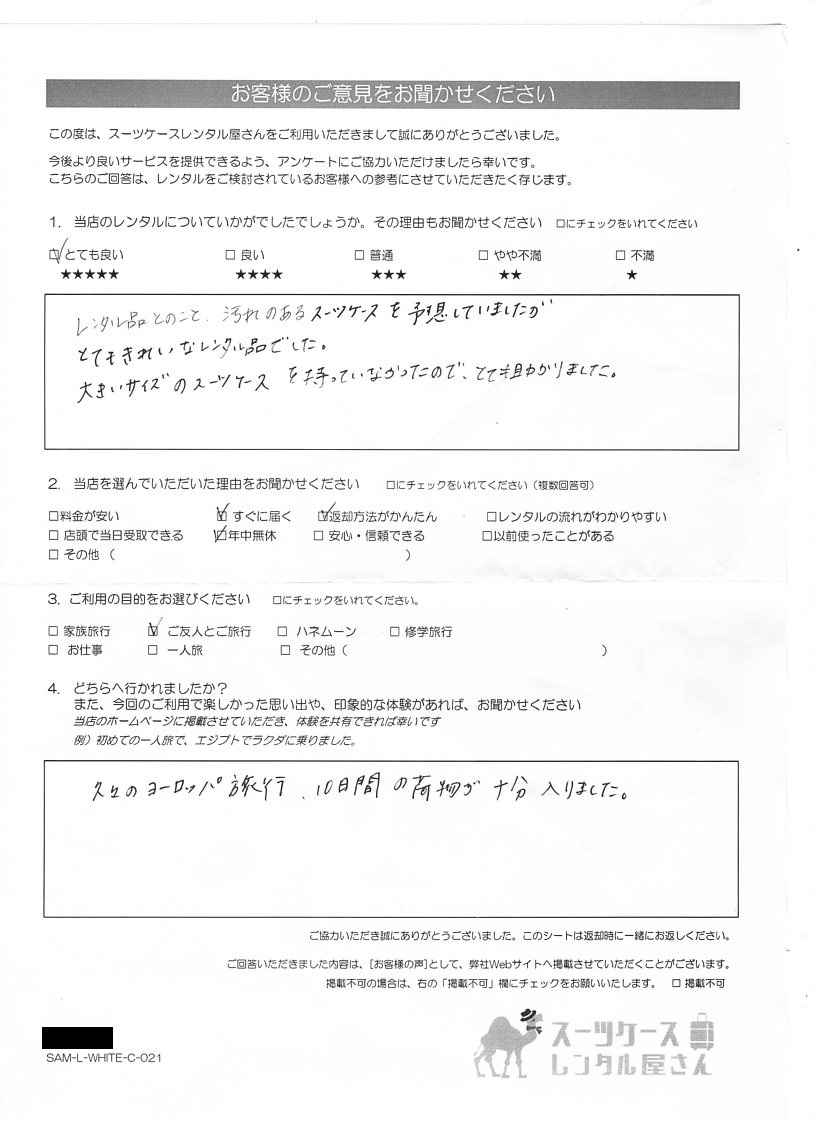 お客様のご意見をお聞かせください
この度は、スーツケースレンタル屋さんをご利用いただきまして誠にありがとうございました。
今後より良いサービスを提供できるよう、アンケートにご協力いただけましたら幸いです。
こちらのご回答は、レンタルをご検討されているお客様への参考にさせていただきたく存じます。
1. 当店のレンタルについていかがでしたでしょうか。その理由もお聞かせください □にチェックをいれてください
☑とても良い □ 良い □ 普通 □ やや不満 □ 不満
★★★★★ ★★★★ ★★★ ★★ ★
レンタル品とのこと、汚れのあるスーツケースを予想していましたが
とてもきれいなレンタル品でした。
大きいサイズのスーツケースを持っていなかったので、とても助かりました。
2. 当店を選んでいただいた理由をお聞かせください □にチェックをいれてください（複数回答可）
□料金が安い ☑ すぐに届く ☑返却方法がかんたん □レンタルの流れがわかりやすい
□ 店頭で当日受取できる ☑年中無休 □ 安心・信頼できる □以前使ったことがある
□ その他（ ）
3. ご利用の目的をお選びください □にチェックをいれてください。
□ 家族旅行 ☑ ご友人とご旅行 □ ハネムーン □ 修学旅行
□ お仕事 □ 一人旅 □ その他（ ）
4. どちらへ行かれましたか？
また、今回のご利用で楽しかった思い出や、印象的な体験があれば、お聞かせください
当店のホームページに掲載させていただき、体験を共有できれば幸いです
例）初めての一人旅で、エジプトでラクダに乗りました。
久々のヨーロッパ旅行、10日間の荷物が十分入りました。
ご協力いただき誠にありがとうございました。このシートは返却時に一緒にお返しください。
ご回答いただきました内容は、[お客様の声]として、弊社Webサイトへ掲載させていただくことがございます。
掲載不可の場合は、右の「掲載不可」欄にチェックをお願いいたします。 □ 掲載不可
SAM-L-WHITE-C-021
スーツケース
レンタル屋さん